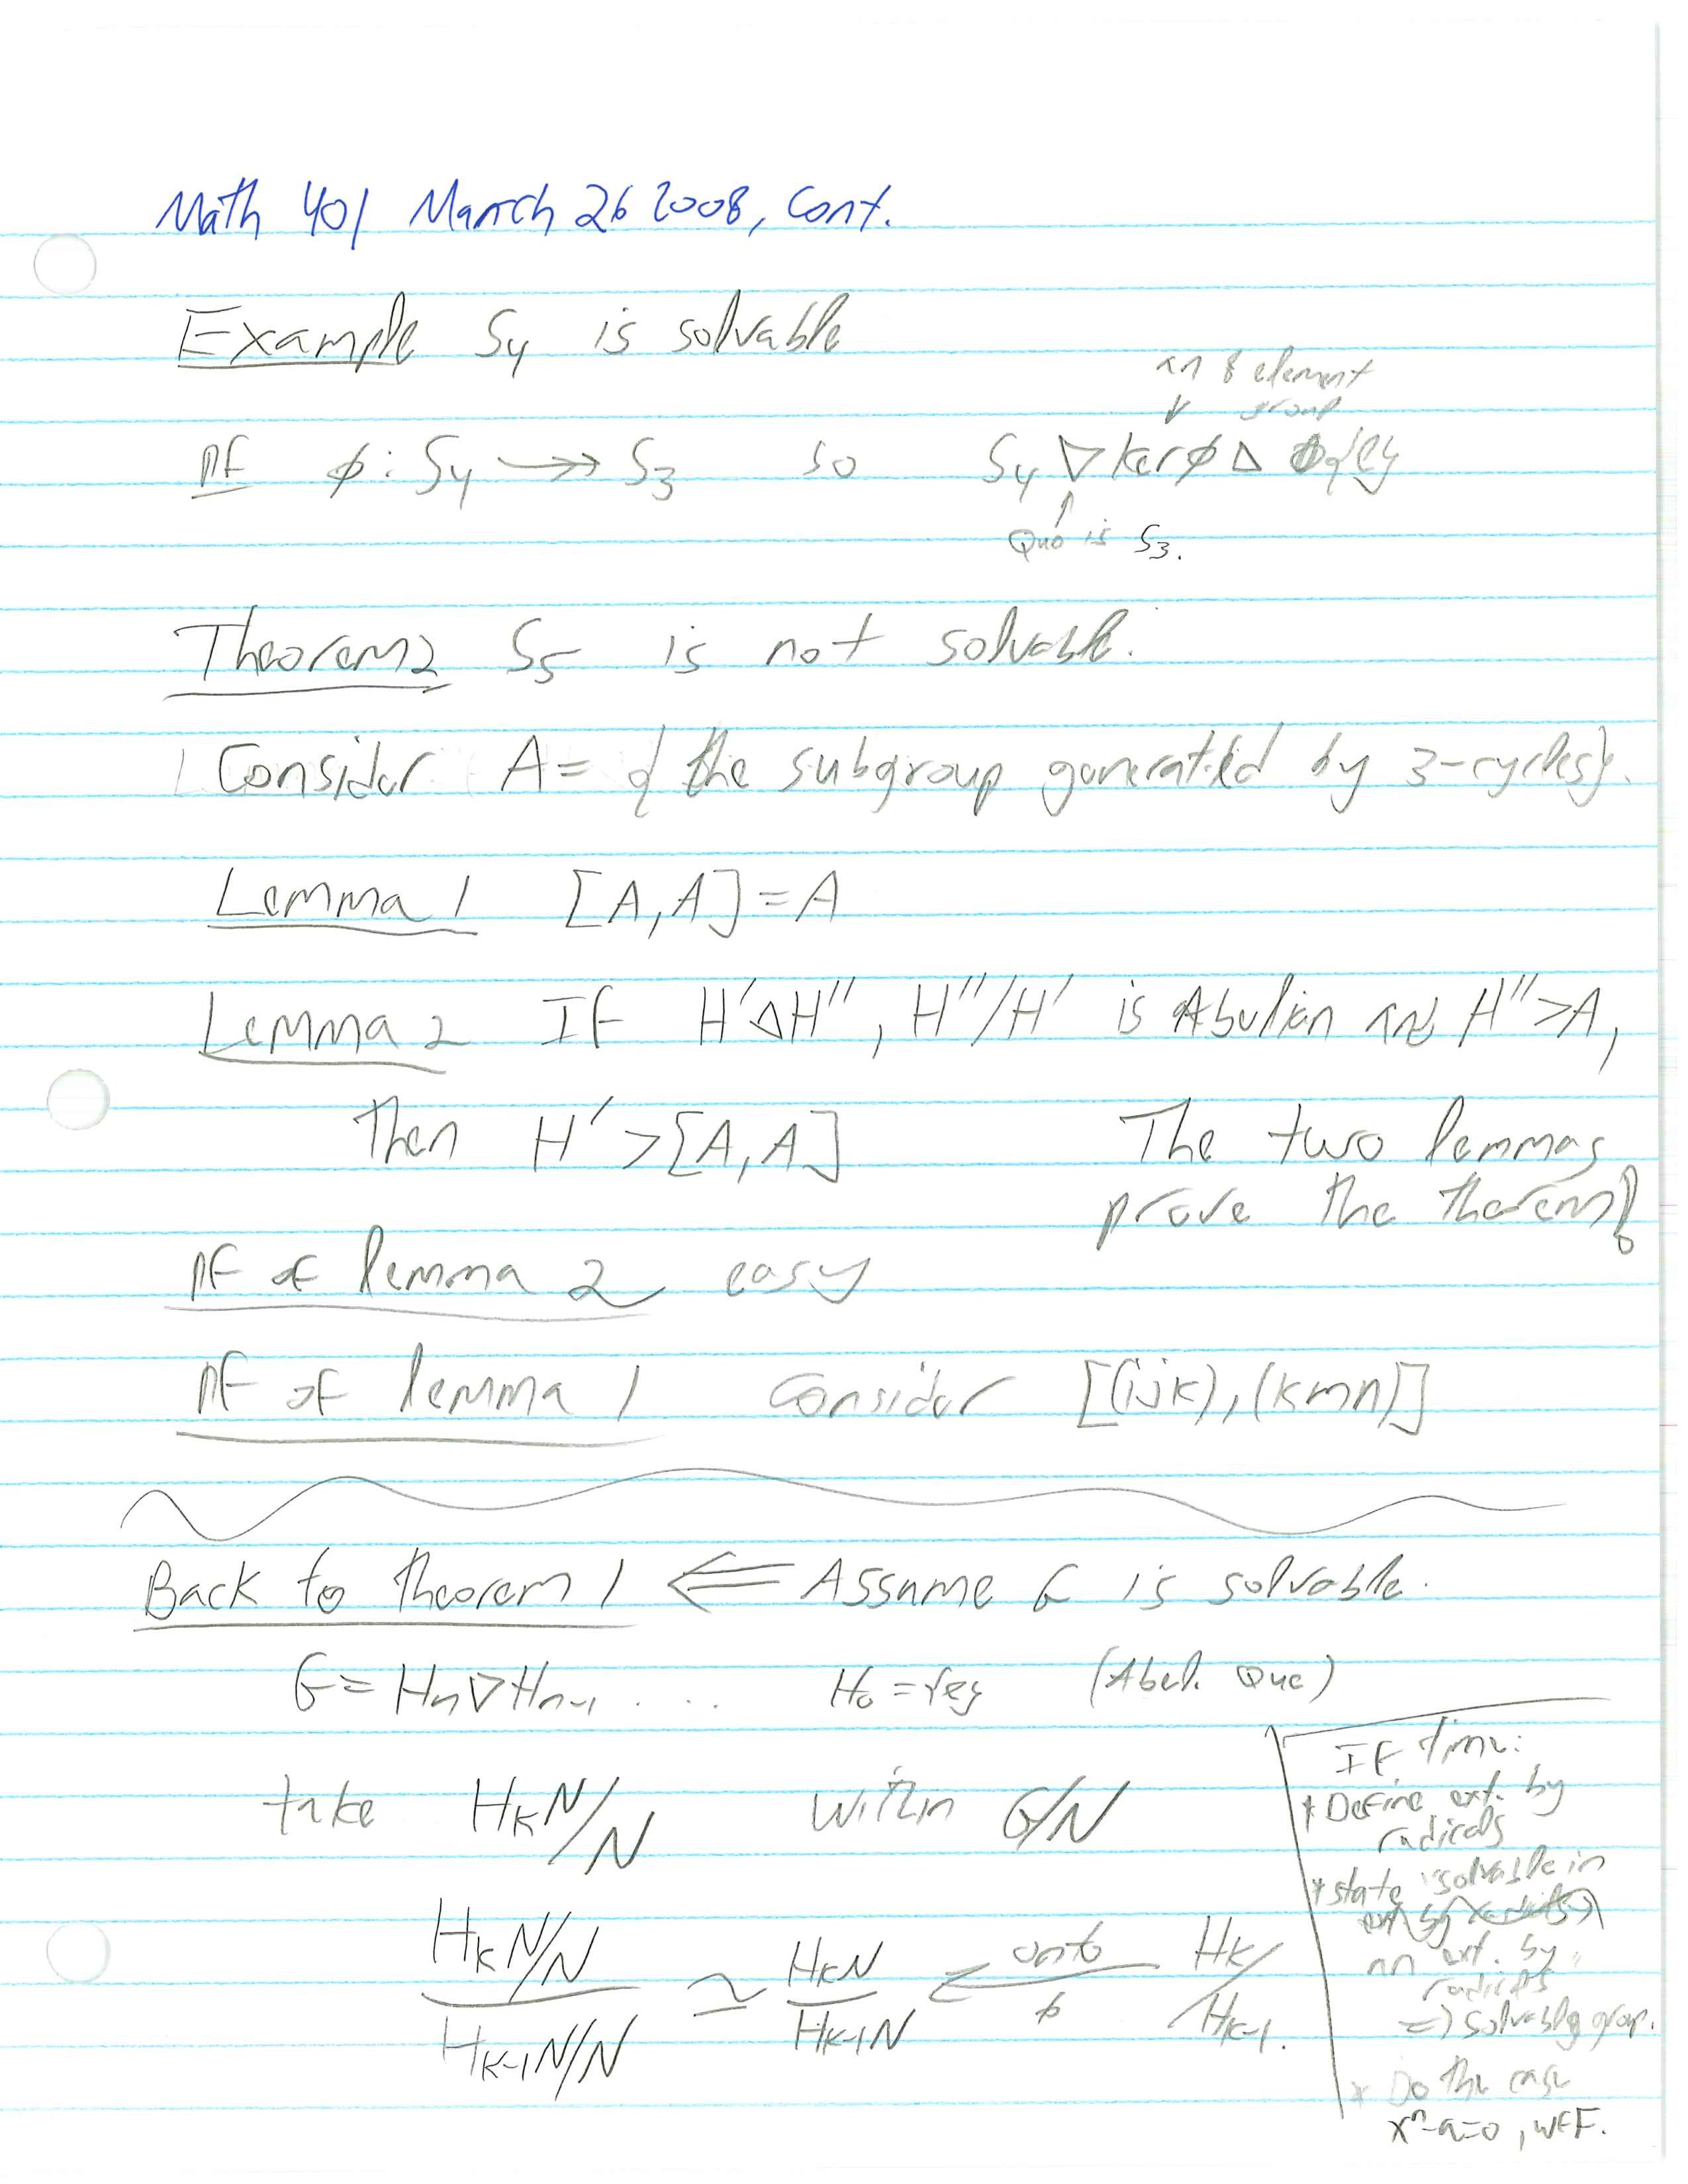 Math 401 March 26 2008, cont.
Example S₄ is solvable
an 8 element
group
pf ϕ: S₄ ↠ S₃ so S₄ ▷ kerϕ △ {e}
Quo is S₃.
Theorem 2 S₅ is not solvable.
Consider A = {the subgroup generated by 3-cycles}.
Lemma 1 [A,A]=A
Lemma 2 If H'△H'', H''/H' is Abelian and H''>A,
Then H' >[A,A] The two lemmas
prove the theorem!
pf of lemma 2 easy
pf of lemma 1 consider [(ijk),(kmn)]
Back to theorem 1 ⇐ Assume G is solvable.
G = Hₙ ▽ Hₙ₋₁ .... H₀ = {e} (Abel. Quo)
take H_K N/N within G/N
(H_K N/N)/(H_{K-1} N/N) ≃ (H_K N)/(H_{K-1} N) ⟵ onto ϕ H_K/H_{K-1}.
If time:
* Define ext. by
radicals
* state "solvable in
an ext. by
radicals"
⇒ solvable group.
* Do the case
xⁿ-a=0, w∈F.